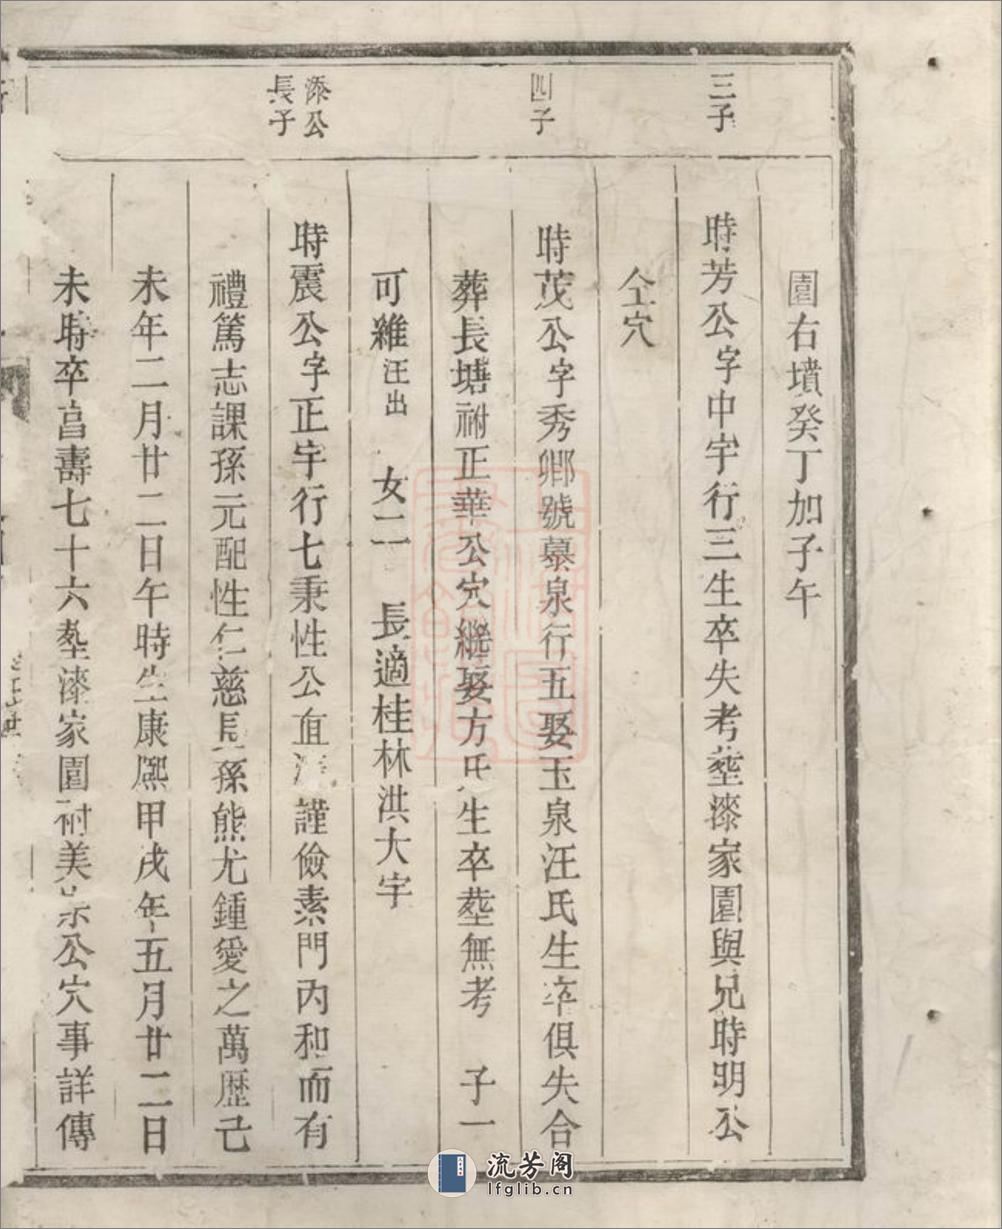 園右墳癸丁加子午
三子
時芳公字中宇行三生卒失考塟漆家園與兄時明公
仝穴
四子
時茂公字秀卿號慕泉行五娶玉泉汪氏生卒俱失合
葬長塘祔正華公穴繼娶方氏生卒塟無考 子一
可維汪出 女二 長適桂林洪大宇
添公
長子
時震公字正宇行七秉性公直 謹儉素門内和而有
禮篤志課孫元配性仁慈長孫熊尤鍾愛之萬歷己
未年二月廿二日午時生康熈甲戌年五月廿二日
未時卒啚壽七十六塟漆家園祔美宗公穴事詳傳
流芳阁
lfglib.cn